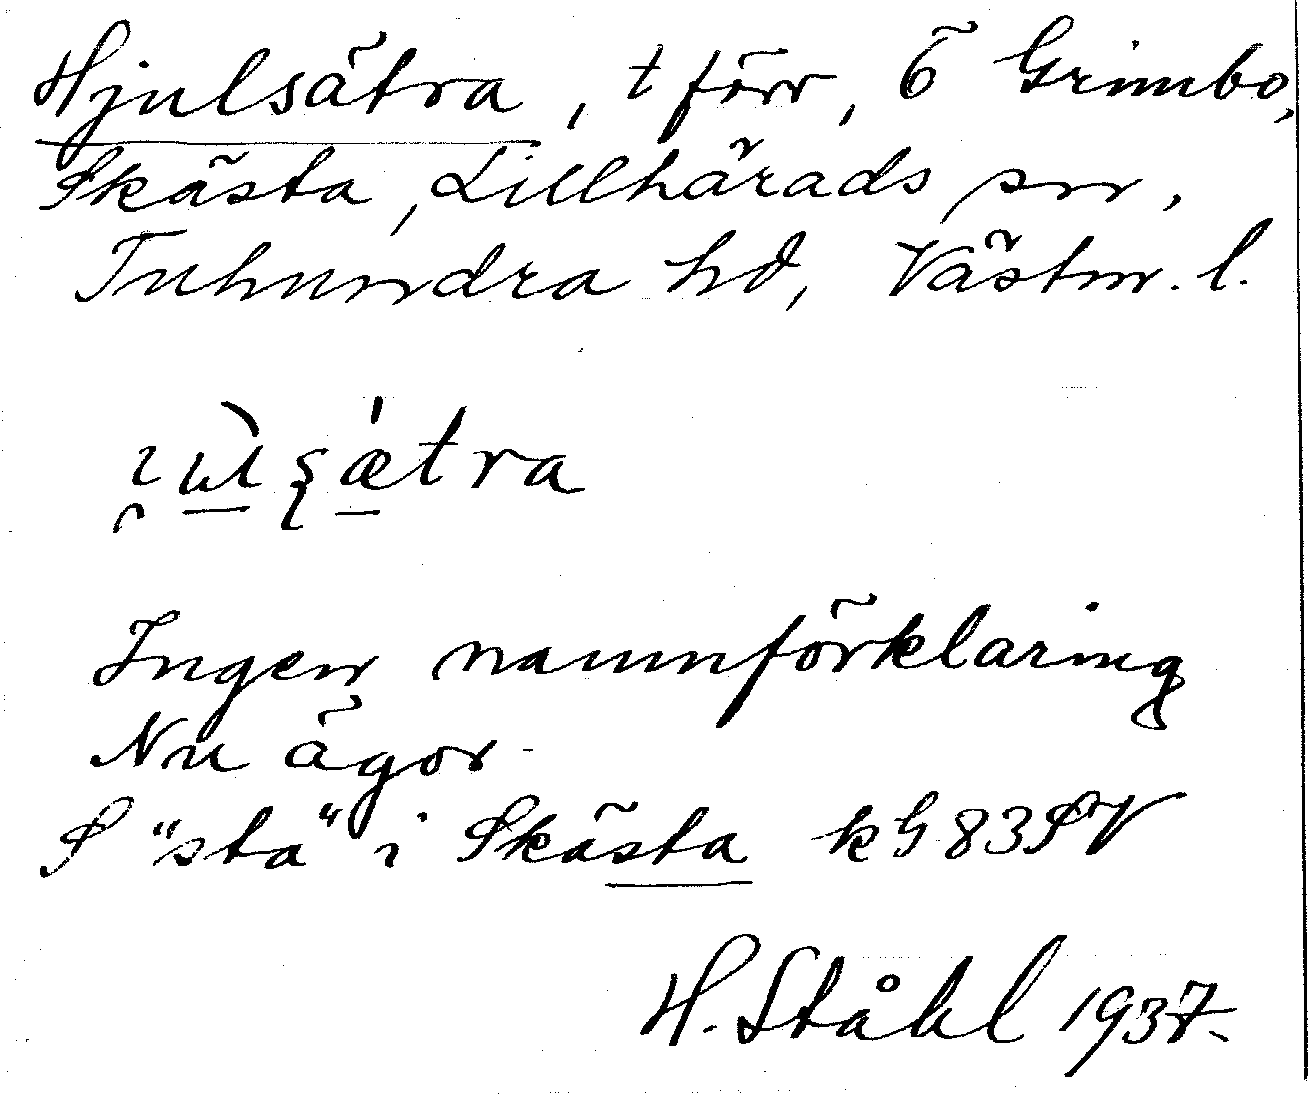 Hjulsätra, t förr, Ö Grimbo,
Skästa, Lillhärads sn,
Tuhundra hd, Västm. l.
Ingen namnförklaring
Nu ägor
S "sta" i Skästa kG83SV
H. Ståhl 1937.